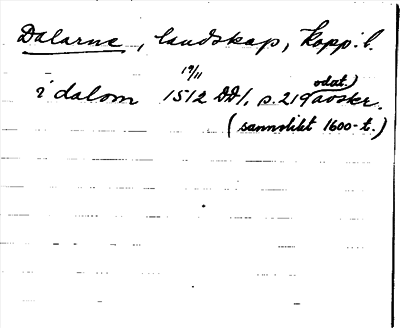 Dalarne, landskap, Kopp. l.
19/11
i dalom 1512 DD1, s.219 odat.) avskr.
(sannolikt 1600-t.)